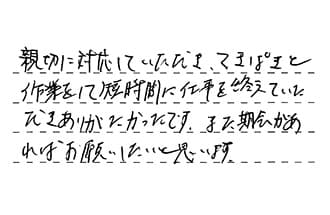 親切に対応していただき、てきぱきと
作業をして短時間に仕事を終えていた
だきありがたかったです。また機会があ
ればお願いしたいと思います。